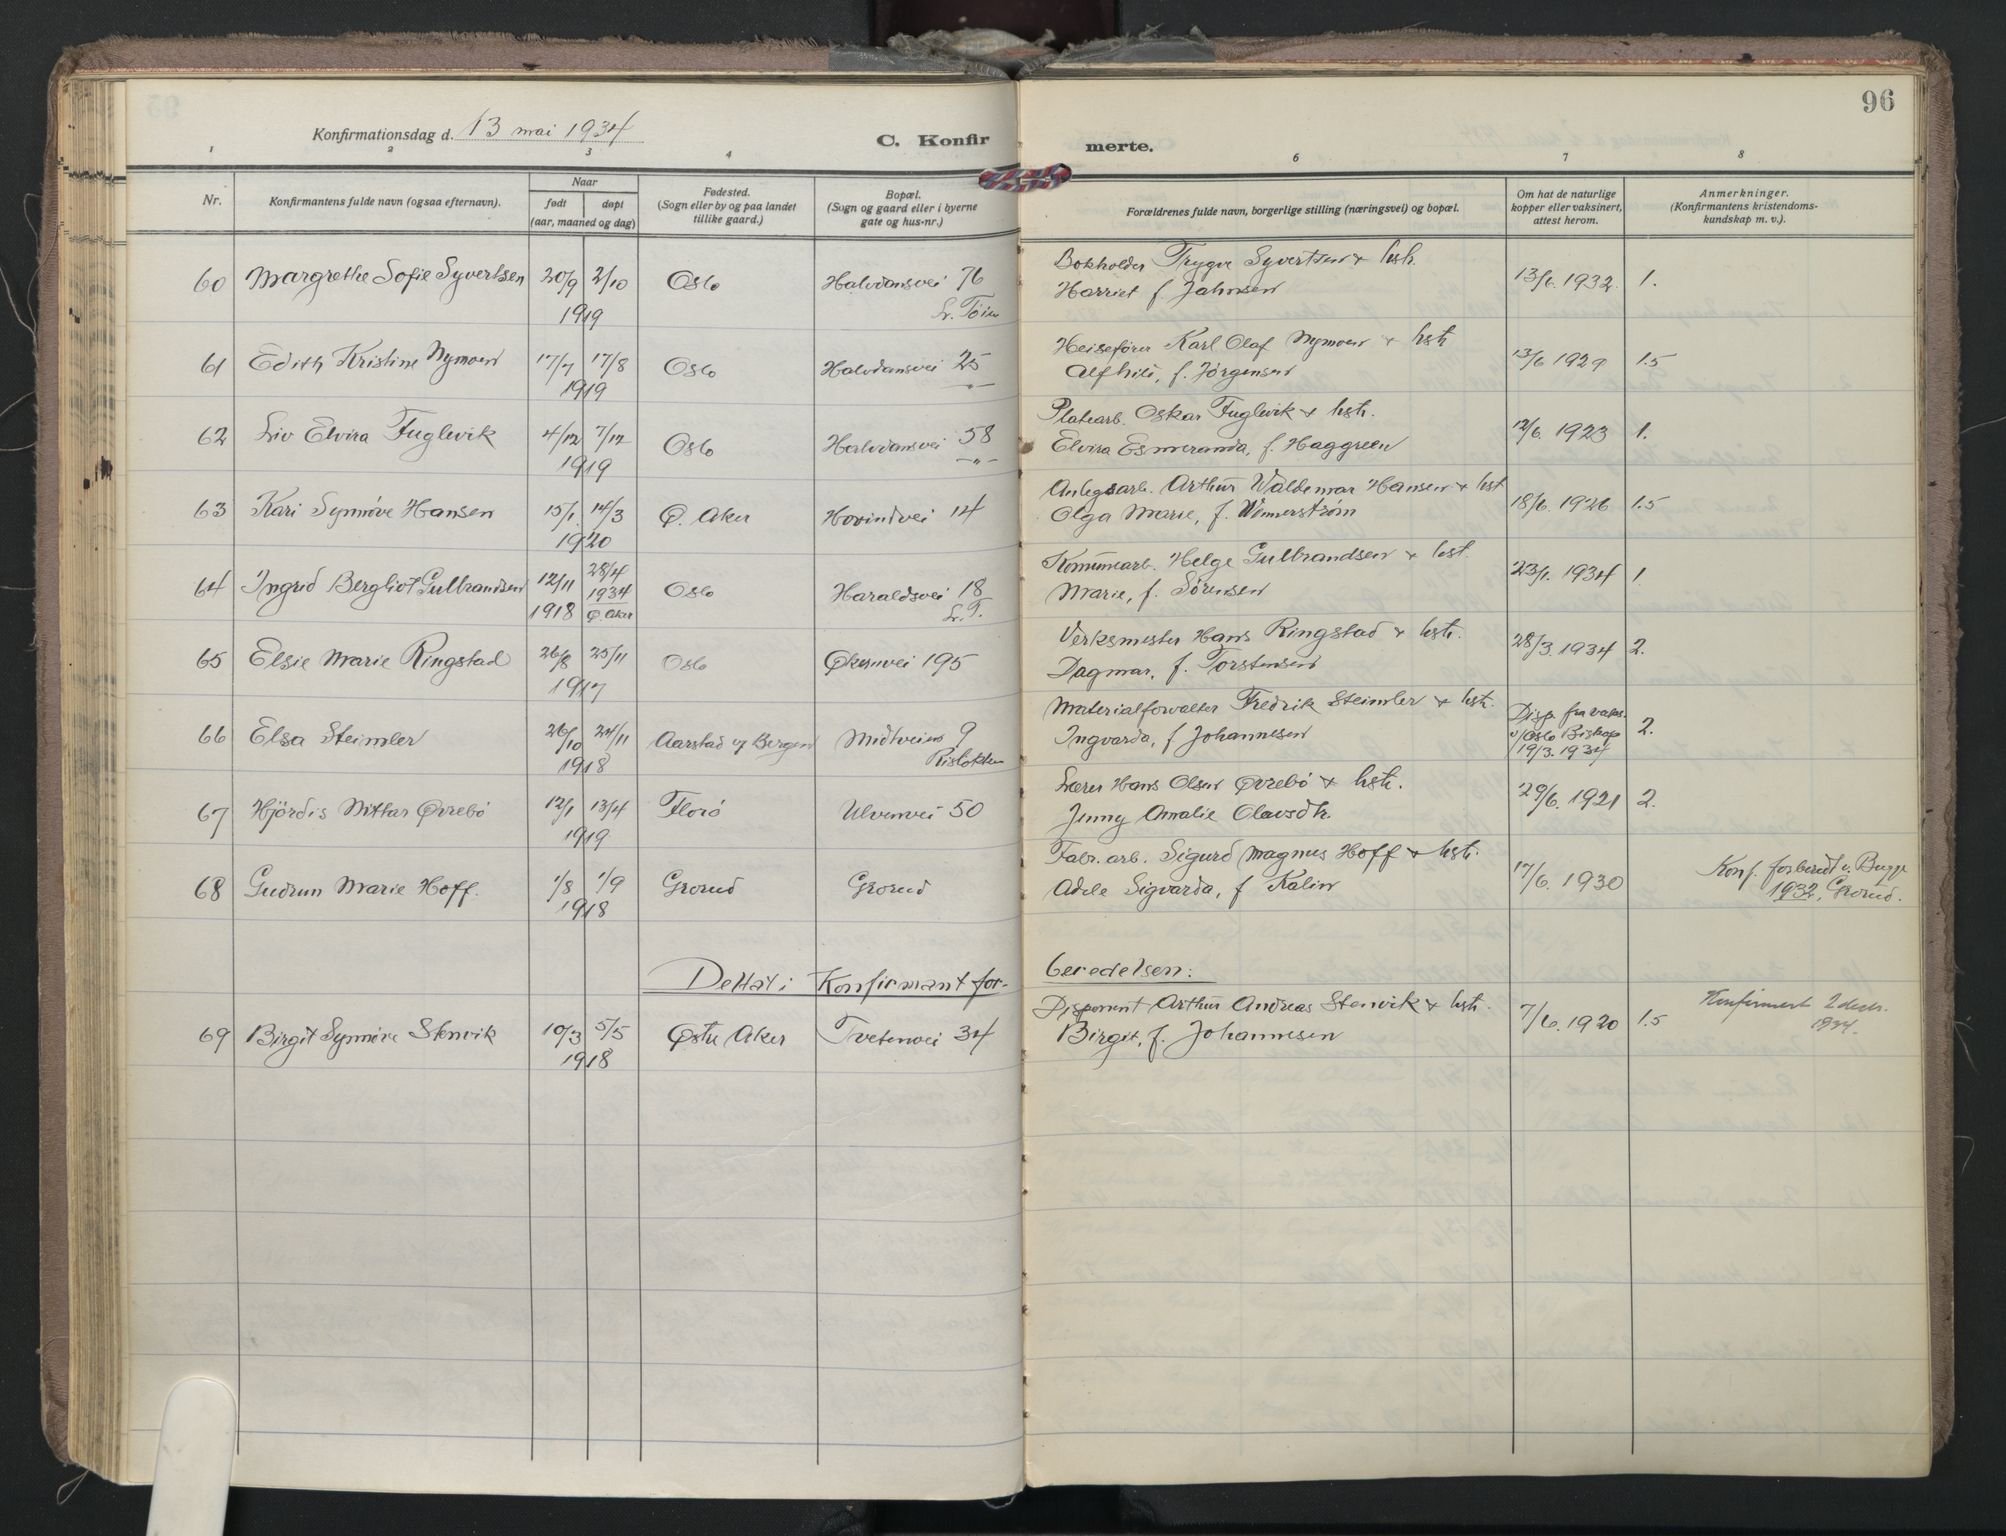 96
Konfirmationsdag d. 13 mai 1934
C. Konfir
merte.
1 2 3 4 6 7 8
Nr.
Konfirmantens fulde navn (ogsaa efternavn).
Naar
født
døpt
(aar, maaned og dag)
Fødested.
(Sogn eller by og paa landet
tillike gaard.)
Bopæl.
(Sogn og gaard eller i byerne
gate og hus-nr.)
Forældrenes fulde navn, borgerlige stilling (næringsvei) og bopæl.
Om hat de naturlige
kopper eller vaksinert,
attest herom.
Anmerkninger.
(Konfirmantens kristendoms-
kundskap m. v.).
60 Margrethe Sofie Syvertsen 20/9 2/10 Oslo Halvdansvei 76 Bokholder Trygve Syvertsen & hstr. 13/6. 1932. 1.
1919 Lr. Tøien Harriet f. Jahnsen
61 Edith Kristine Nymoen 17/7 17/8 Oslo Halvdansvei 25 Heisefører Karl Olaf Nymoen & hstr 13/6 1929 1.5
1919 -"- Alfhild, f. Jørgensen
62 Liv Elvira Fuglevik 4/12 7/12 Oslo Halvdansvei 58 Platearb. Oskar Fuglevik & hstr. 12/6. 1923 1.
1919 -"- Elvira Esmeranda, f. Haggreen
63 Kari Synnøve Hansen 15/1. 14/3 Ø. Aker Hovindvei 14 Anlegsarb. Arthur Waldemar Hansen & hst 18/6. 1926 1.5
1920 Olga Marie, f. Wennerstrøm
64 Ingrid Bergliot Gulbrandsen 12/11 28/4 Oslo Haraldsvei 18 Komunearb. Helge Gulbrandsen & hst. 23/1. 1934 1.
1918 1934 Ø. Aker Lr. T. Marie, f. Sörensen
65 Elsie Marie Ringstad 26/8 25/11 Oslo Økernvei 195 Verksmester Hans Ringstad & hstr. 28/3. 1934 2.
1917 Dagmar, f. Torstensen
66 Elsa Steimler 26/10 24/11 Aarstad og Bergen Midtveien 9 Materialforvalter Fredrik Steimler & hstr. Disp. fra vaks. 2.
1918 Risløkken Ingvarda, f Johannesen v/Oslo Biskop
19/3. 1934
67 Hjördis Mittar Øvrebö 12/1 13/4 Florö Ulvenvei 50 Lærer Hans Olsen Øvrebö & hstr. 29/6. 1921 2.
1919 Jenny Amalie Olavsdtr.
68 Gudrun Marie Hoff. 1/8 1/9 Grorud Grorud Fabr. arb. Sigurd Magnus Hoff & hstr. 17/6. 1930 Konf. forberedt v. Bugge
1918 Adele Sigvarda, f Kalin 1932, Grorud.
Deltat i Konfirmantfor-
beredelsen:
69 Birgit Synnöve Stenvik 10/3 5/5 Østre Aker Tvetenvei 34 Disponent Arthur Andreas Stenvik & hstr. 7/6. 1920 1.5 Konfirmert 2 desb.
1918 Birgit, f. Johannesen 1934.